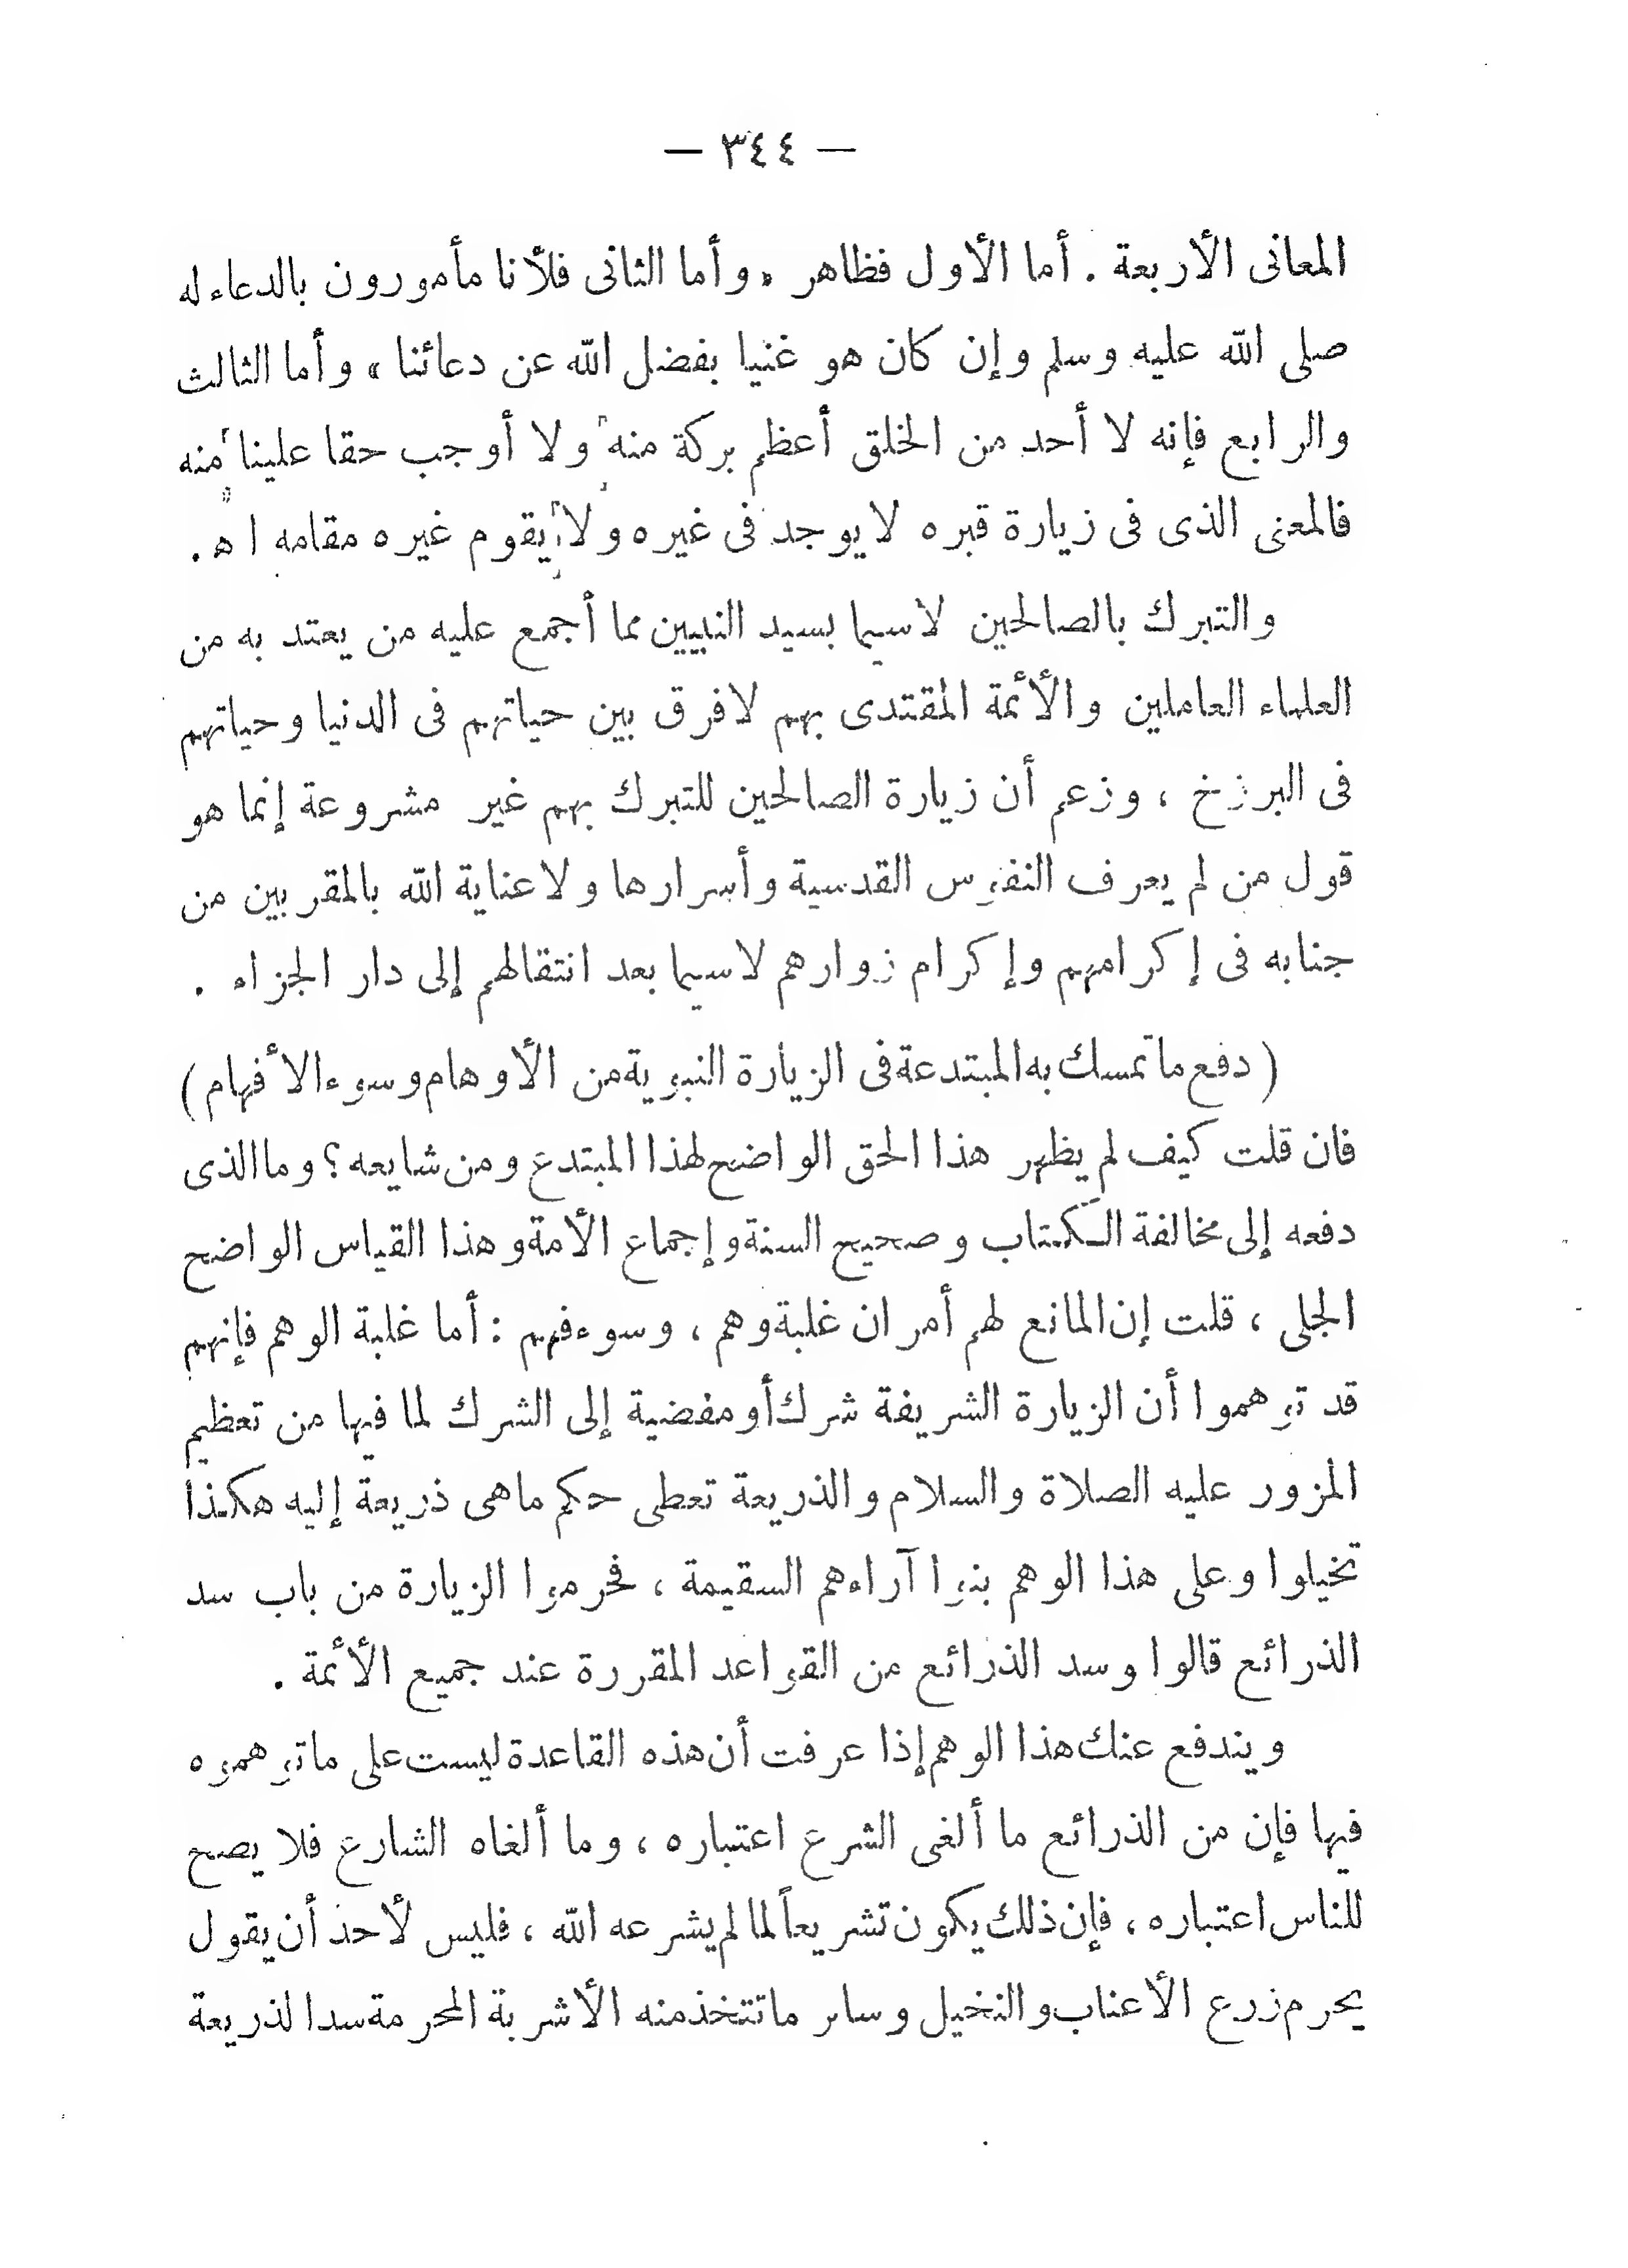 — ٣٤٤ —
المعانى الأربعة . أما الأول فظاهر . وأما الثانى فلأنا مأمورون بالدعاء له
صلى الله عليه وسلم وإن كان هو غنيا بفضل الله عن دعائنا ، وأما الثالث
والرابع فإنه لا أحد من الخلق أعظم بركة منه ولا أوجب حقا علينا منه
فالمعنى الذى فى زيارة قبره لا يوجد فى غيره ولا يقوم غيره مقامه ا ه .
والتبرك بالصالحين لاسيما بسيد النبيين مما أجمع عليه من يعتد به من
العلماء العاملين والأئمة المقتدى بهم لا فرق بين حياتهم فى الدنيا وحياتهم
فى البرزخ ، وزعم أن زيارة الصالحين للتبرك بهم غير مشروعة إنما هو
قول من لم يعرف النفوس القدسية وأسرارها ولا عناية الله بالمقربين من
جنابه فى إكرامهم وإكرام زوارهم لاسيما بعد انتقالهم إلى دار الجزاء .
( دفع ما تمسك به المبتدعة فى الزيارة النبوية من الأوهام وسوء الأفهام )
فان قلت كيف لم يظهر هذا الحق الواضح لهذا المبتدع ومن شايعه ؟ وما الذى
دفعه إلى مخالفة الكتاب وصحيح السنة وإجماع الأمة وهذا القياس الواضح
الجلى ، قلت إن المانع لهم أمران غلبة وهم ، وسوء فهم : أما غلبة الوهم فإنهم
قد توهموا أن الزيارة الشريفة شرك أو مفضية إلى الشرك لما فيها من تعظيم
المزور عليه الصلاة والسلام والذريعة تعطى حكم ما هى ذريعة إليه هكذا
تخيلوا وعلى هذا الوهم بنوا آراءهم السقيمة ، فحرموا الزيارة من باب سد
الذرائع قالوا وسد الذرائع من القواعد المقررة عند جميع الأئمة .
ويندفع عنك هذا الوهم إذا عرفت أن هذه القاعدة ليست على ما توهموه
فيها فإن من الذرائع ما ألغى الشرع اعتباره ، وما ألغاه الشارع فلا يصح
للناس اعتباره ، فإن ذلك يكون تشريعاً لما لم يشرعه الله ، فليس لأحد أن يقول
يحرم زرع الأعناب والنخيل وسائر ما تتخذ منه الأشربة المحرمة سدا لذريعة